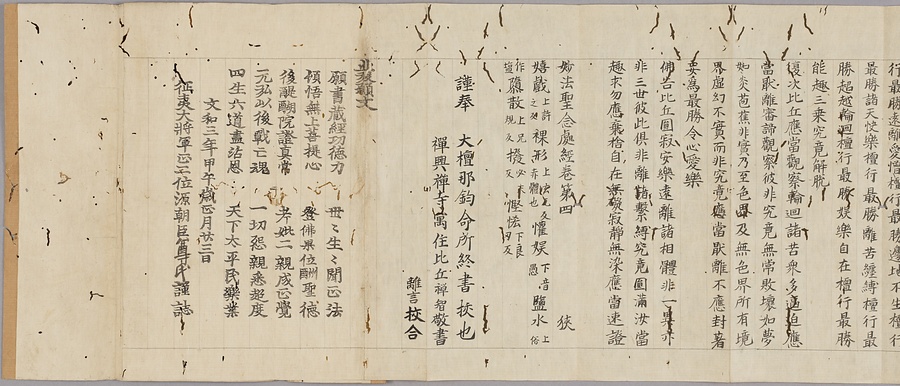 行最勝遠離愛憎檀行最勝邊地不生檀行
最勝諸天悅樂檀行最勝離苦纏縛檀行最
勝超越輪迴檀行最勝娛樂自在檀行最勝
能趣三乘究竟解脫
復次比丘應當觀察輪迴諸苦衆多逼迫應
當厭離審諦觀察彼非究竟無常敗壞如夢
如炎芭蕉非實乃至色界及無色界所有境
界虛幻不實而非究竟應當厭離不應封著
妄爲最勝令心愛樂
佛告比丘圓寂安樂遠離諸相體非一異亦
非三世彼此俱非離諸繫縛究竟圓滿汝當
趣求勿應棄捨自在無礙寂靜無染應當速證
妙法聖念處經卷第四 狹
嬉戲 上許之反 裸形 赤體也 懼娛 下音愚 鹽水
謹奉 大檀那鈞命所終書挍也
禪興禪寺寓住比丘禪智敬書
離言挍合
此發願文
願書藏經功德力 世々生々聞正法
頓悟無上菩提心 登佛果位酬聖德
後醍醐院證真常 考妣二親成正覺
元弘以後戰亡魂 一切怨親悉超度
四生六道盡沾恩 天下太平民樂業
文和三年甲午歲正月廿三日
征夷大將軍正二位源朝臣尊氏謹誌